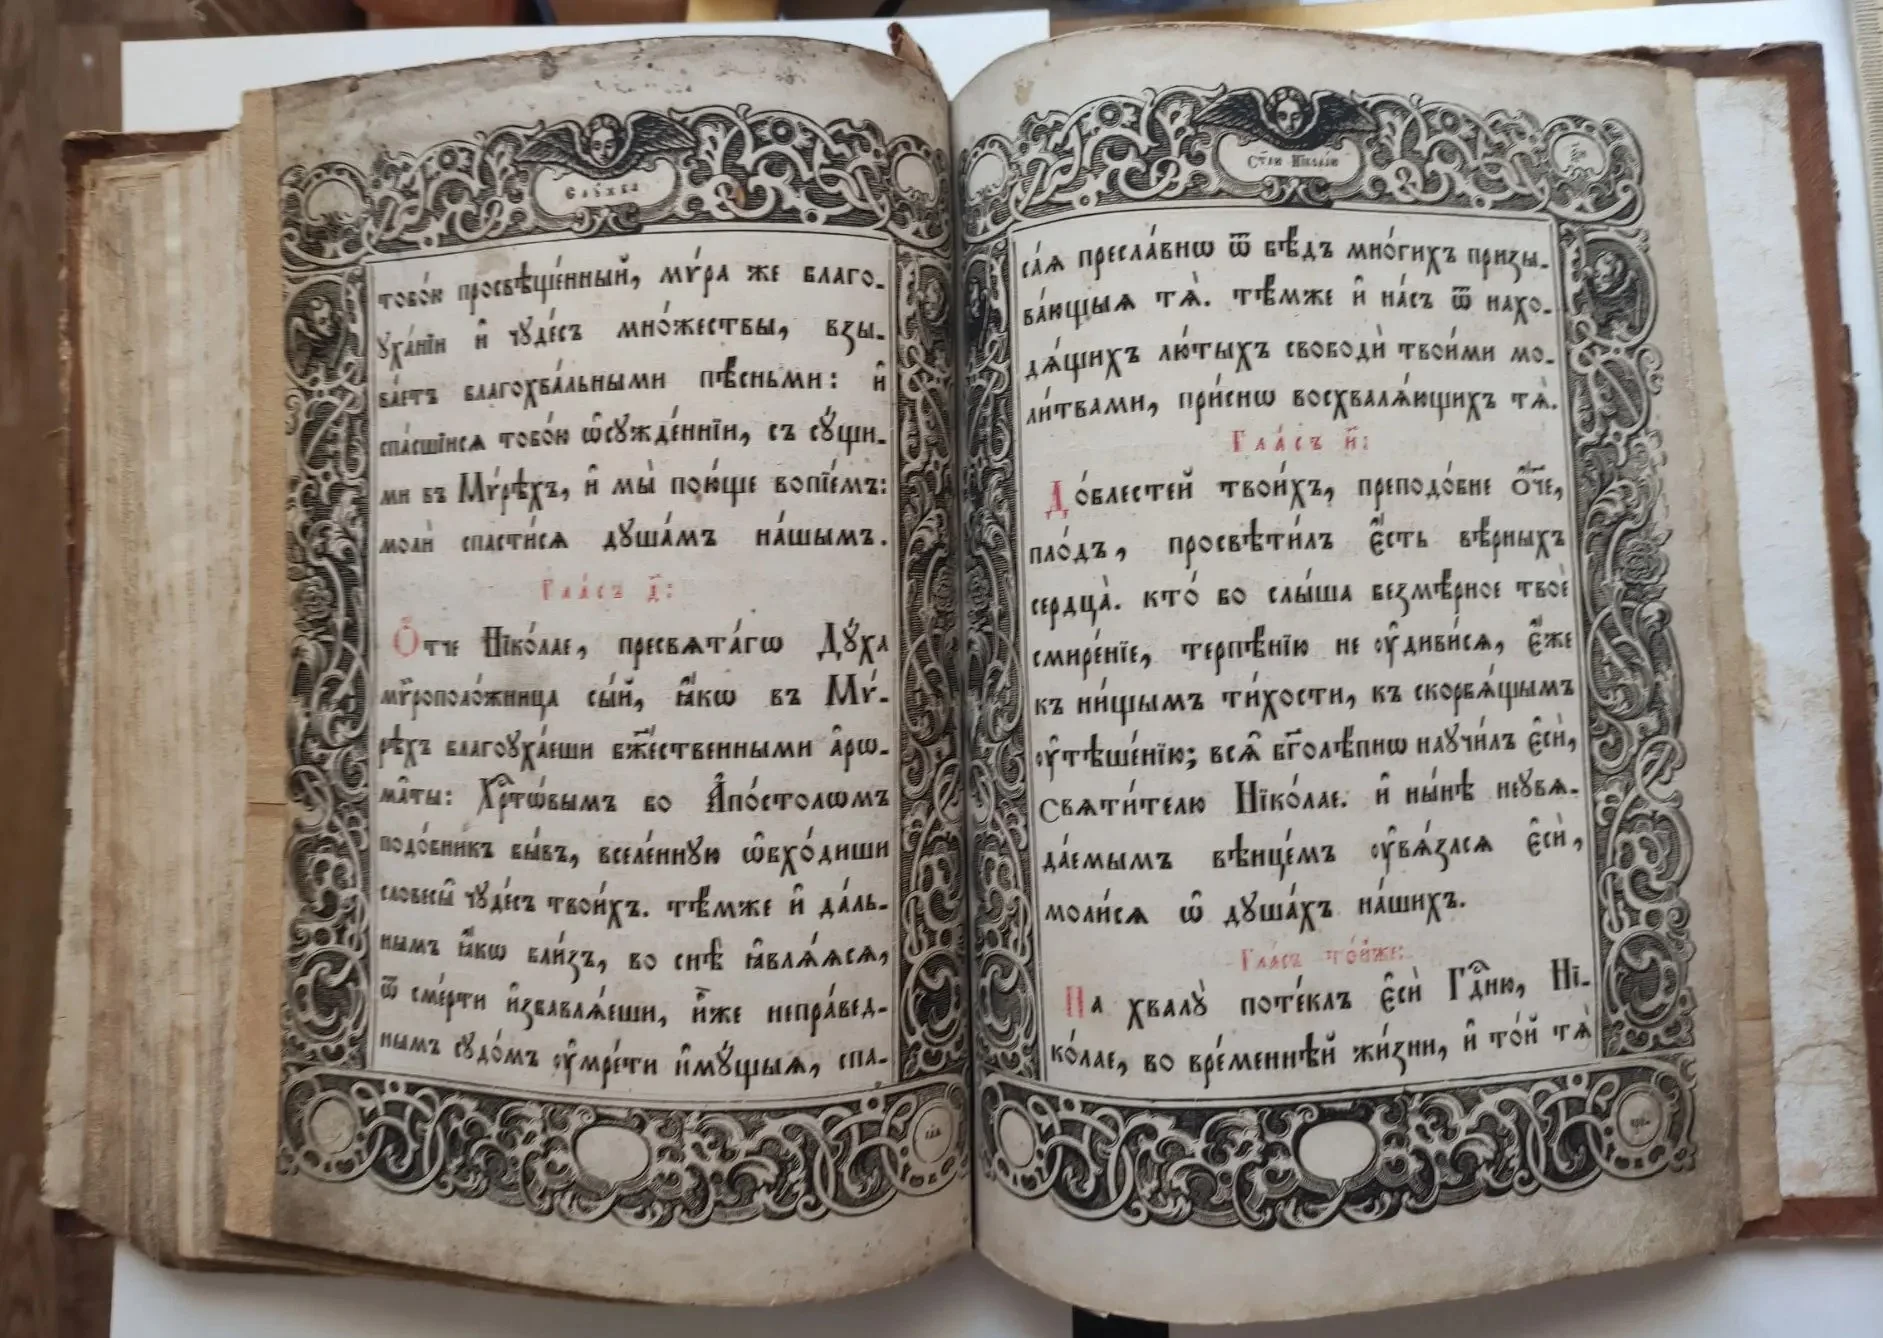 Слꙋжба
тобо́ю просвѣще́нный, мѵ́ра же благо-
ꙋха́нїи и҆ чꙋде́съ мно́жествы, взы-
ва́етъ благохва́льными пѣ́сньми: и҆
спа́сшїися тобо́ю ѡ҆сꙋжде́ннїи, съ сꙋ́щи-
ми въ Мѵ́рѣхъ, и҆ мы̀ пою́ще вопїе́мъ:
молѝ спасти́ся дꙋша́мъ на́шымъ.
Гла́съ д҃:
Ѻ҆́тче Нїко́лае, пресвѧта́гѡ Дꙋ́ха
мѷрополо́жница сы́й, ꙗ҆́кѡ въ Мѵ́-
рѣхъ благоꙋха́еши бж҃е́ственными а҆рѡ-
ма̑ты: Хрⷭ҇тѡ́вымъ бо А҆по́столѡмъ
подо́бникъ бы́въ, вселе́ннꙋю ѡ҆бхо́диши
словесы̑ чꙋде́съ твои́хъ. тѣ́мже и҆ да́ль-
нымъ ꙗ҆́кѡ бли́зъ, во снѣ̀ ꙗ҆влѧ́ѧсѧ,
ѿ сме́рти и҆збавлѧ́еши, и҆̀же непра́вед-
нымъ сꙋдо́мъ ᲂу҆мре́ти и҆мꙋ́щыѧ, спа-
Ст҃ли Нїко́лаю
са́ѧ пресла́внѡ ѿ бѣ́дъ мно́гихъ призы-
ва́ющыѧ тѧ̀. тѣ́мже и҆ на́съ ѿ нахо-
дѧ́щихъ лю́тыхъ свободѝ твои́ми мо-
ли́твами, при́снѡ восхвалѧ́ющихъ тѧ̀.
Гла́съ и҃:
До́блестей твои́хъ, преподо́бне ѻ҆́ч҃е,
пло́дъ, просвѣти́лъ є҆́сть вѣ́рныхъ
сердца̀. кто́ бо слы́ша безмѣ́рное твоѐ
смире́нїе, терпѣ́нїю не ᲂу҆диви́сѧ, є҆́же
къ ни́щымъ ти́хости, къ скорбѧ́щымъ
ᲂу҆тѣше́нїю; всѧ̑ бг҃олѣ́пнѡ наꙋчи́лъ є҆сѝ,
свѧти́телю Нїко́лае. и҆ ны́нѣ неꙋвѧ-
да́емымъ вѣнце́мъ ᲂу҆вѧ́злсѧ є҆сѝ,
моли́сѧ ѡ҆ дꙋша́хъ на́шихъ.
Гла́съ то́йже:
На хвалꙋ̀ поте́клъ є҆сѝ Гдⷭ҇ню, Нї-
ко́лае, во вре́меннѣй жи́зни, и҆ то́й тѧ̀